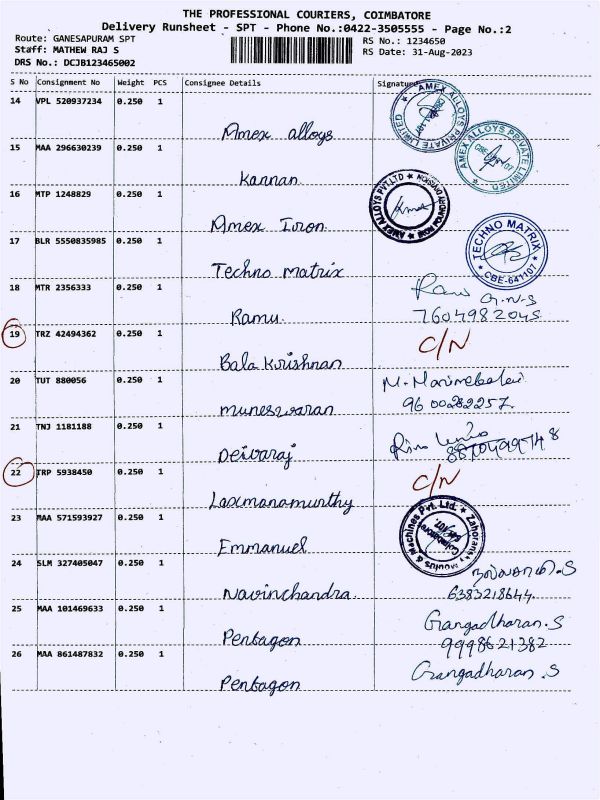 THE PROFESSIONAL COURIERS, COIMBATORE
Delivery Runsheet - SPT - Phone No.:0422-3505555 - Page No.:2
Route: GANESAPURAM SPT
RS No.: 1234650
Staff: MATHEW RAJ S
RS Date: 31-Aug-2023
DRS No.: DCJB123465002
S No Consignment No Weight PCS Consignee Details Signature
14 VPL 520937234 0.250 1
Amex alloys
AMEX ALLOYS PRIVATE LIMITED
15 MAA 296630239 0.250 1
Kannan
AMEX ALLOYS PRIVATE LIMITED
16 MTP 1248829 0.250 1
Amex Iron
AMEX ALLOYS PVT LTD IRON FOUNDRY DIVISION
17 BLR 5550835985 0.250 1
Techno Matrix
TECHNO MATRIX CBE-641107
18 MTR 2356333 0.250 1
Ramu
G.N.S
7604982045
19 TRZ 42494362 0.250 1
C/N
Bala Krishnan
20 TUT 880056 0.250 1
muneswaran
9600282257
21 TNJ 1181188 0.250 1
Deivaraj
22 TRP 5938450 0.250 1
C/N
Laxmanamurthy
23 MAA 571593927 0.250 1
Emmanuel
Moulds & Machines Pvt. Ltd.
Coimbatore
24 SLM 327405047 0.250 1
Navinchandra
6383218644
25 MAA 101469633 0.250 1
Gangadharan.S
Pentagon
9998621382
26 MAA 861487832 0.250 1
Gangadharan.S
Pentagon